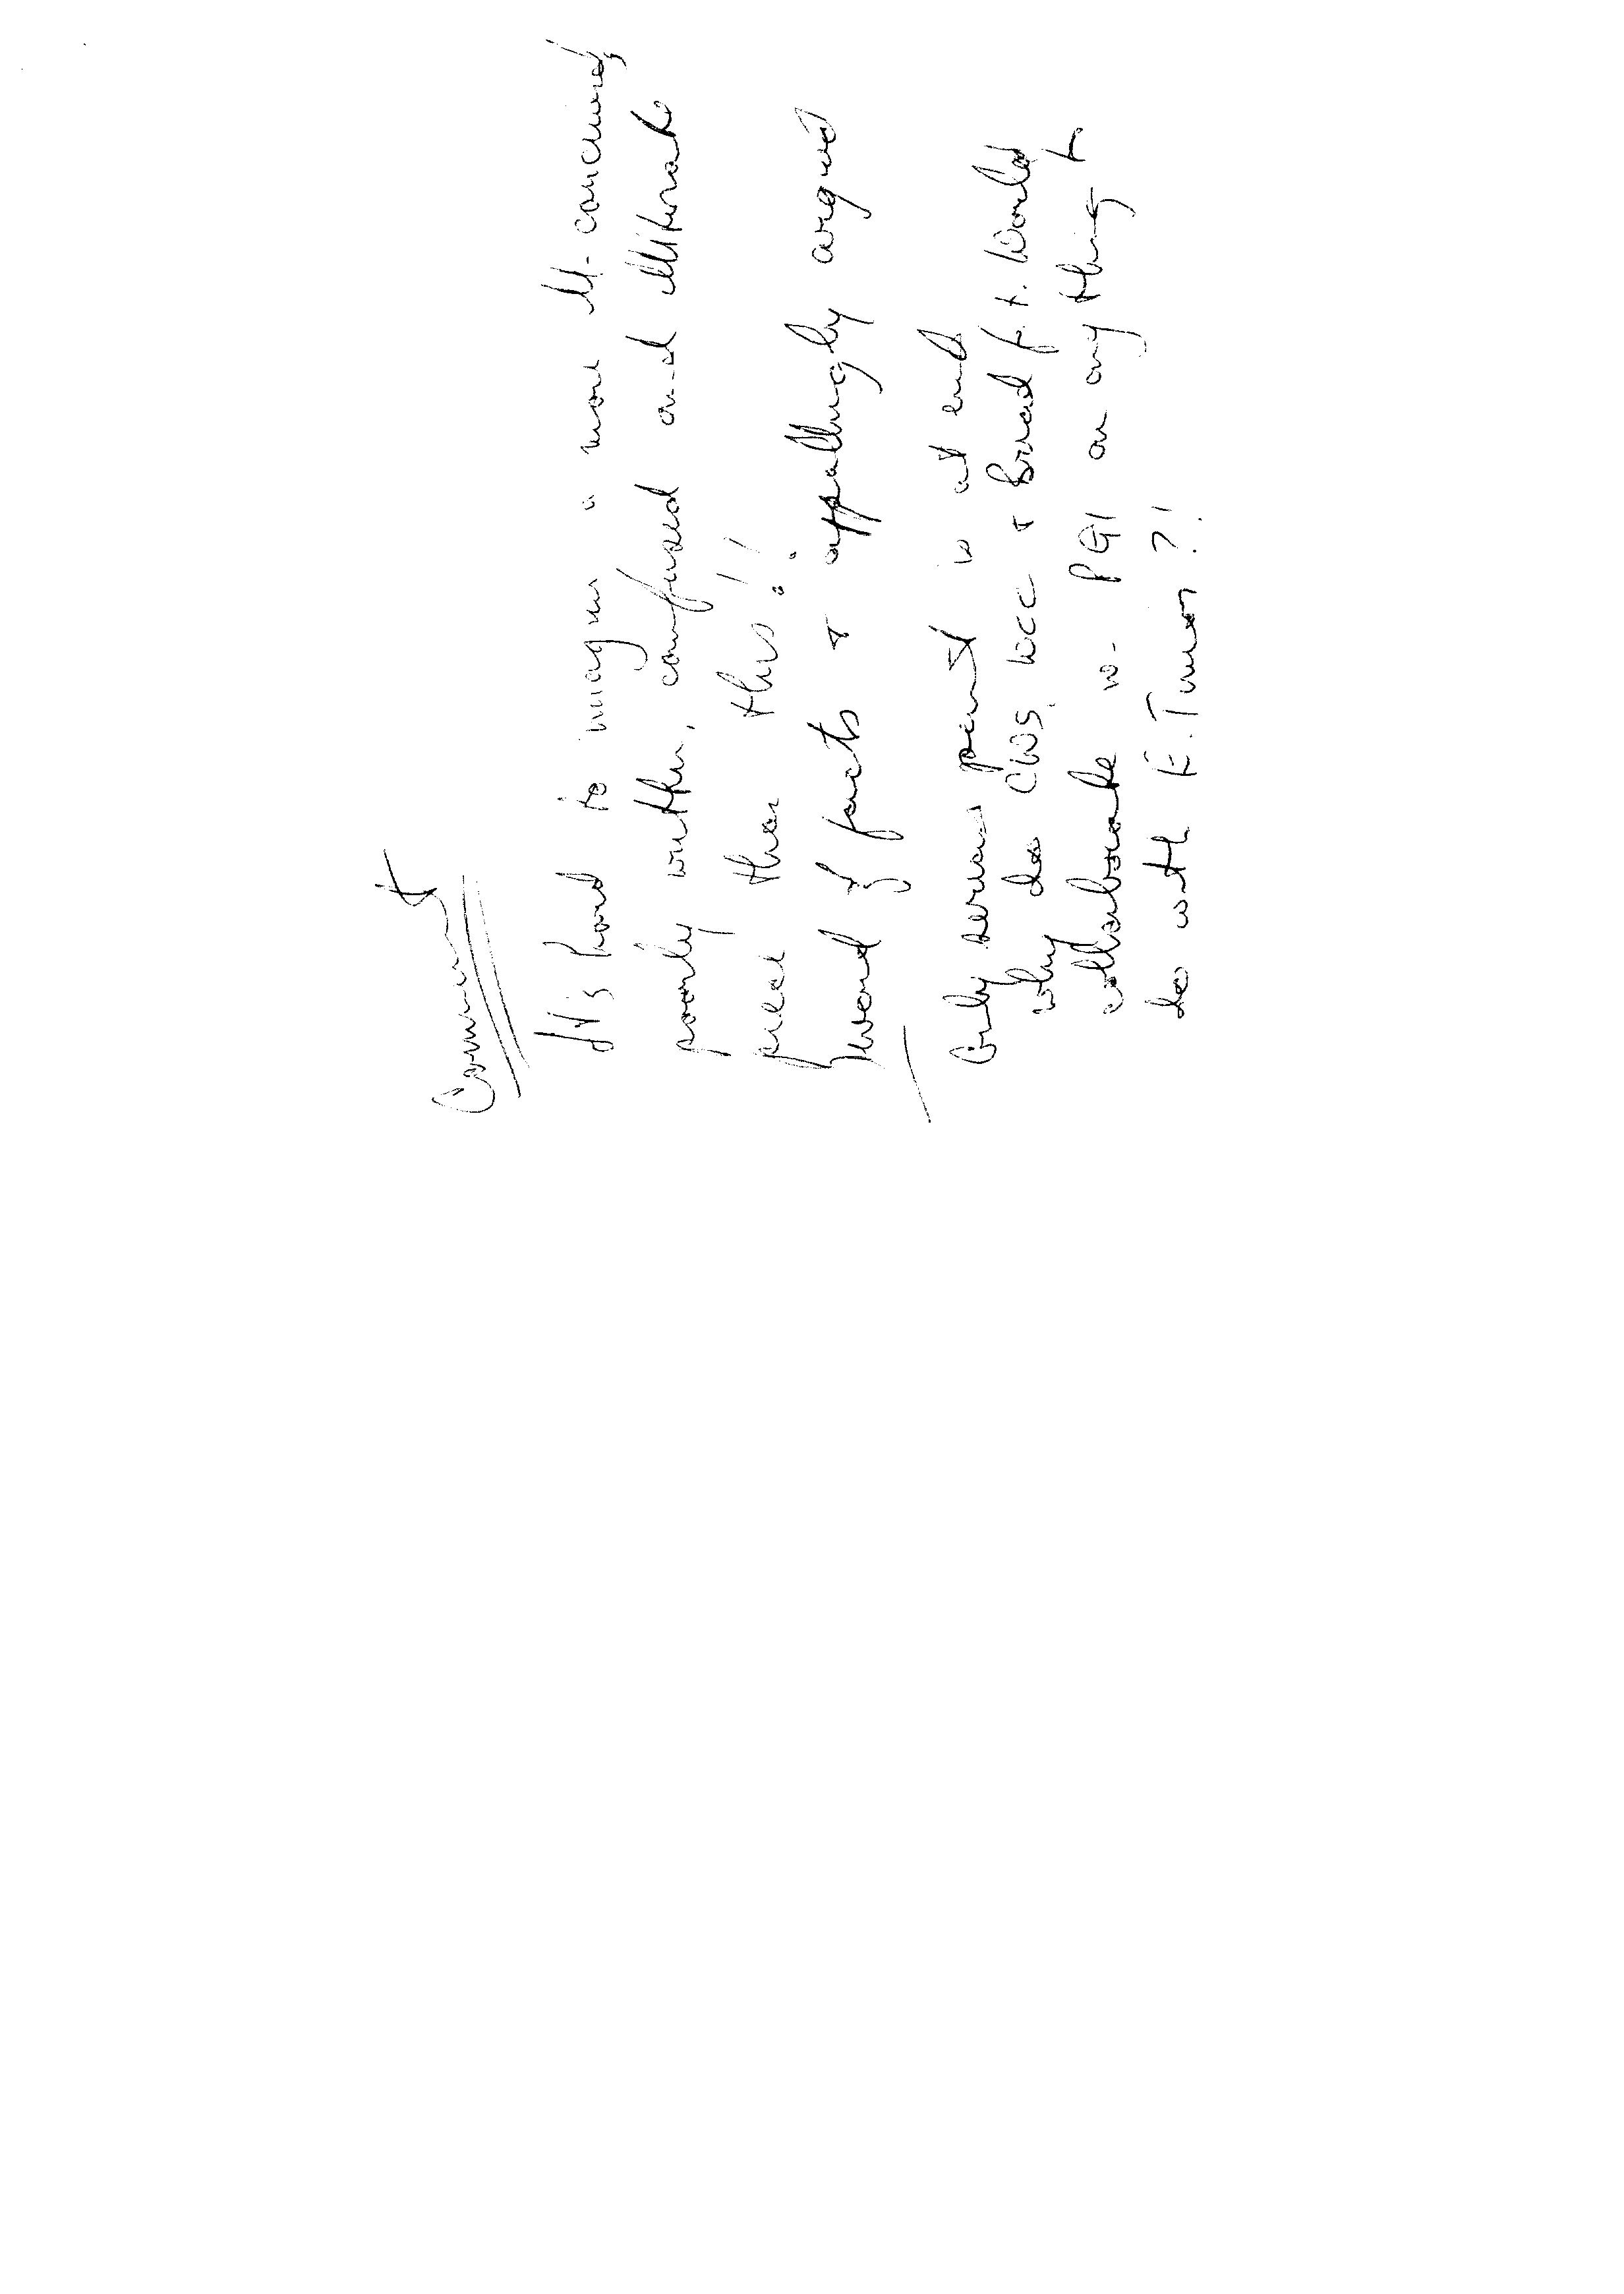 Comment
It's hard to imagine a more ill-conceived,
poorly written, confused and illiterate
piece than this!!
Devoid of facts & appallingly argued
Only serious point is at end
why do CWS, WCC & Bread f. t. World
collaborate w. PGI on anything to
do with E. Timor?!